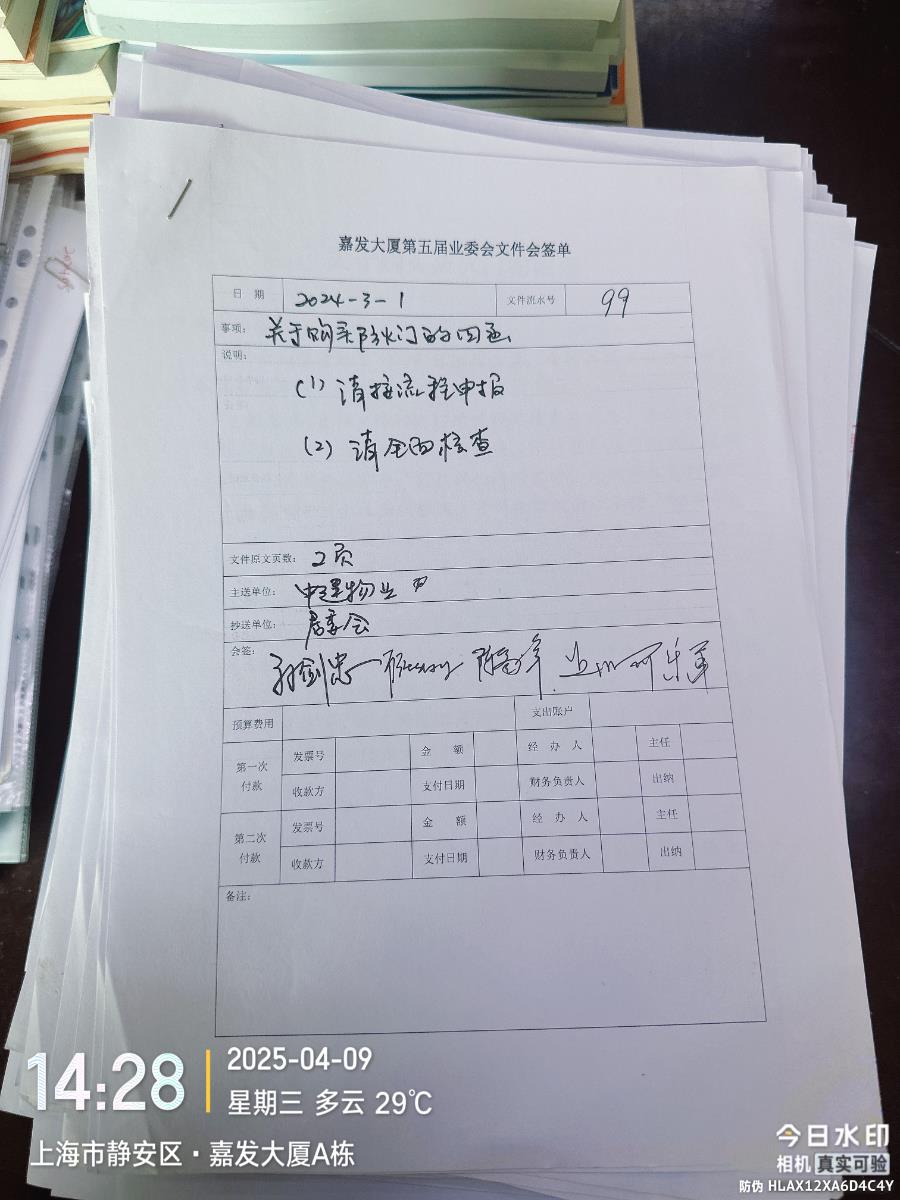 嘉发大厦第五届业委会文件会签单
日 期 2024-3-1 文件流水号 99
事项: 关于购买防火门的回函
说明:
(1) 请按流程申报
(2) 请全面核查
文件原文页数: 2页
主送单位: 中建物业
抄送单位: 居委会
会签:
预算费用 支出账户
第一次付款 发票号 金 额 经 办 人 主任
收款方 支付日期 财务负责人 出纳
第二次付款 发票号 金 额 经 办 人 主任
收款方 支付日期 财务负责人 出纳
备注:
14:28 2025-04-09
星期三 多云 29℃
上海市静安区·嘉发大厦A栋
今日水印
相机 真实可验
防伪 HLAX12XA6D4C4Y